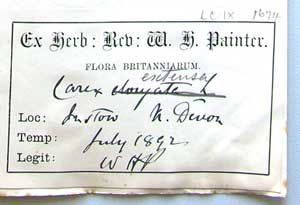 LC IX 1674
Ex Herb: Rev: W. H. Painter.
FLORA BRITANNIARUM.
extensa
Carex elongata L
Loc: Instow N. Devon
Temp: July 1892
Legit: W H P